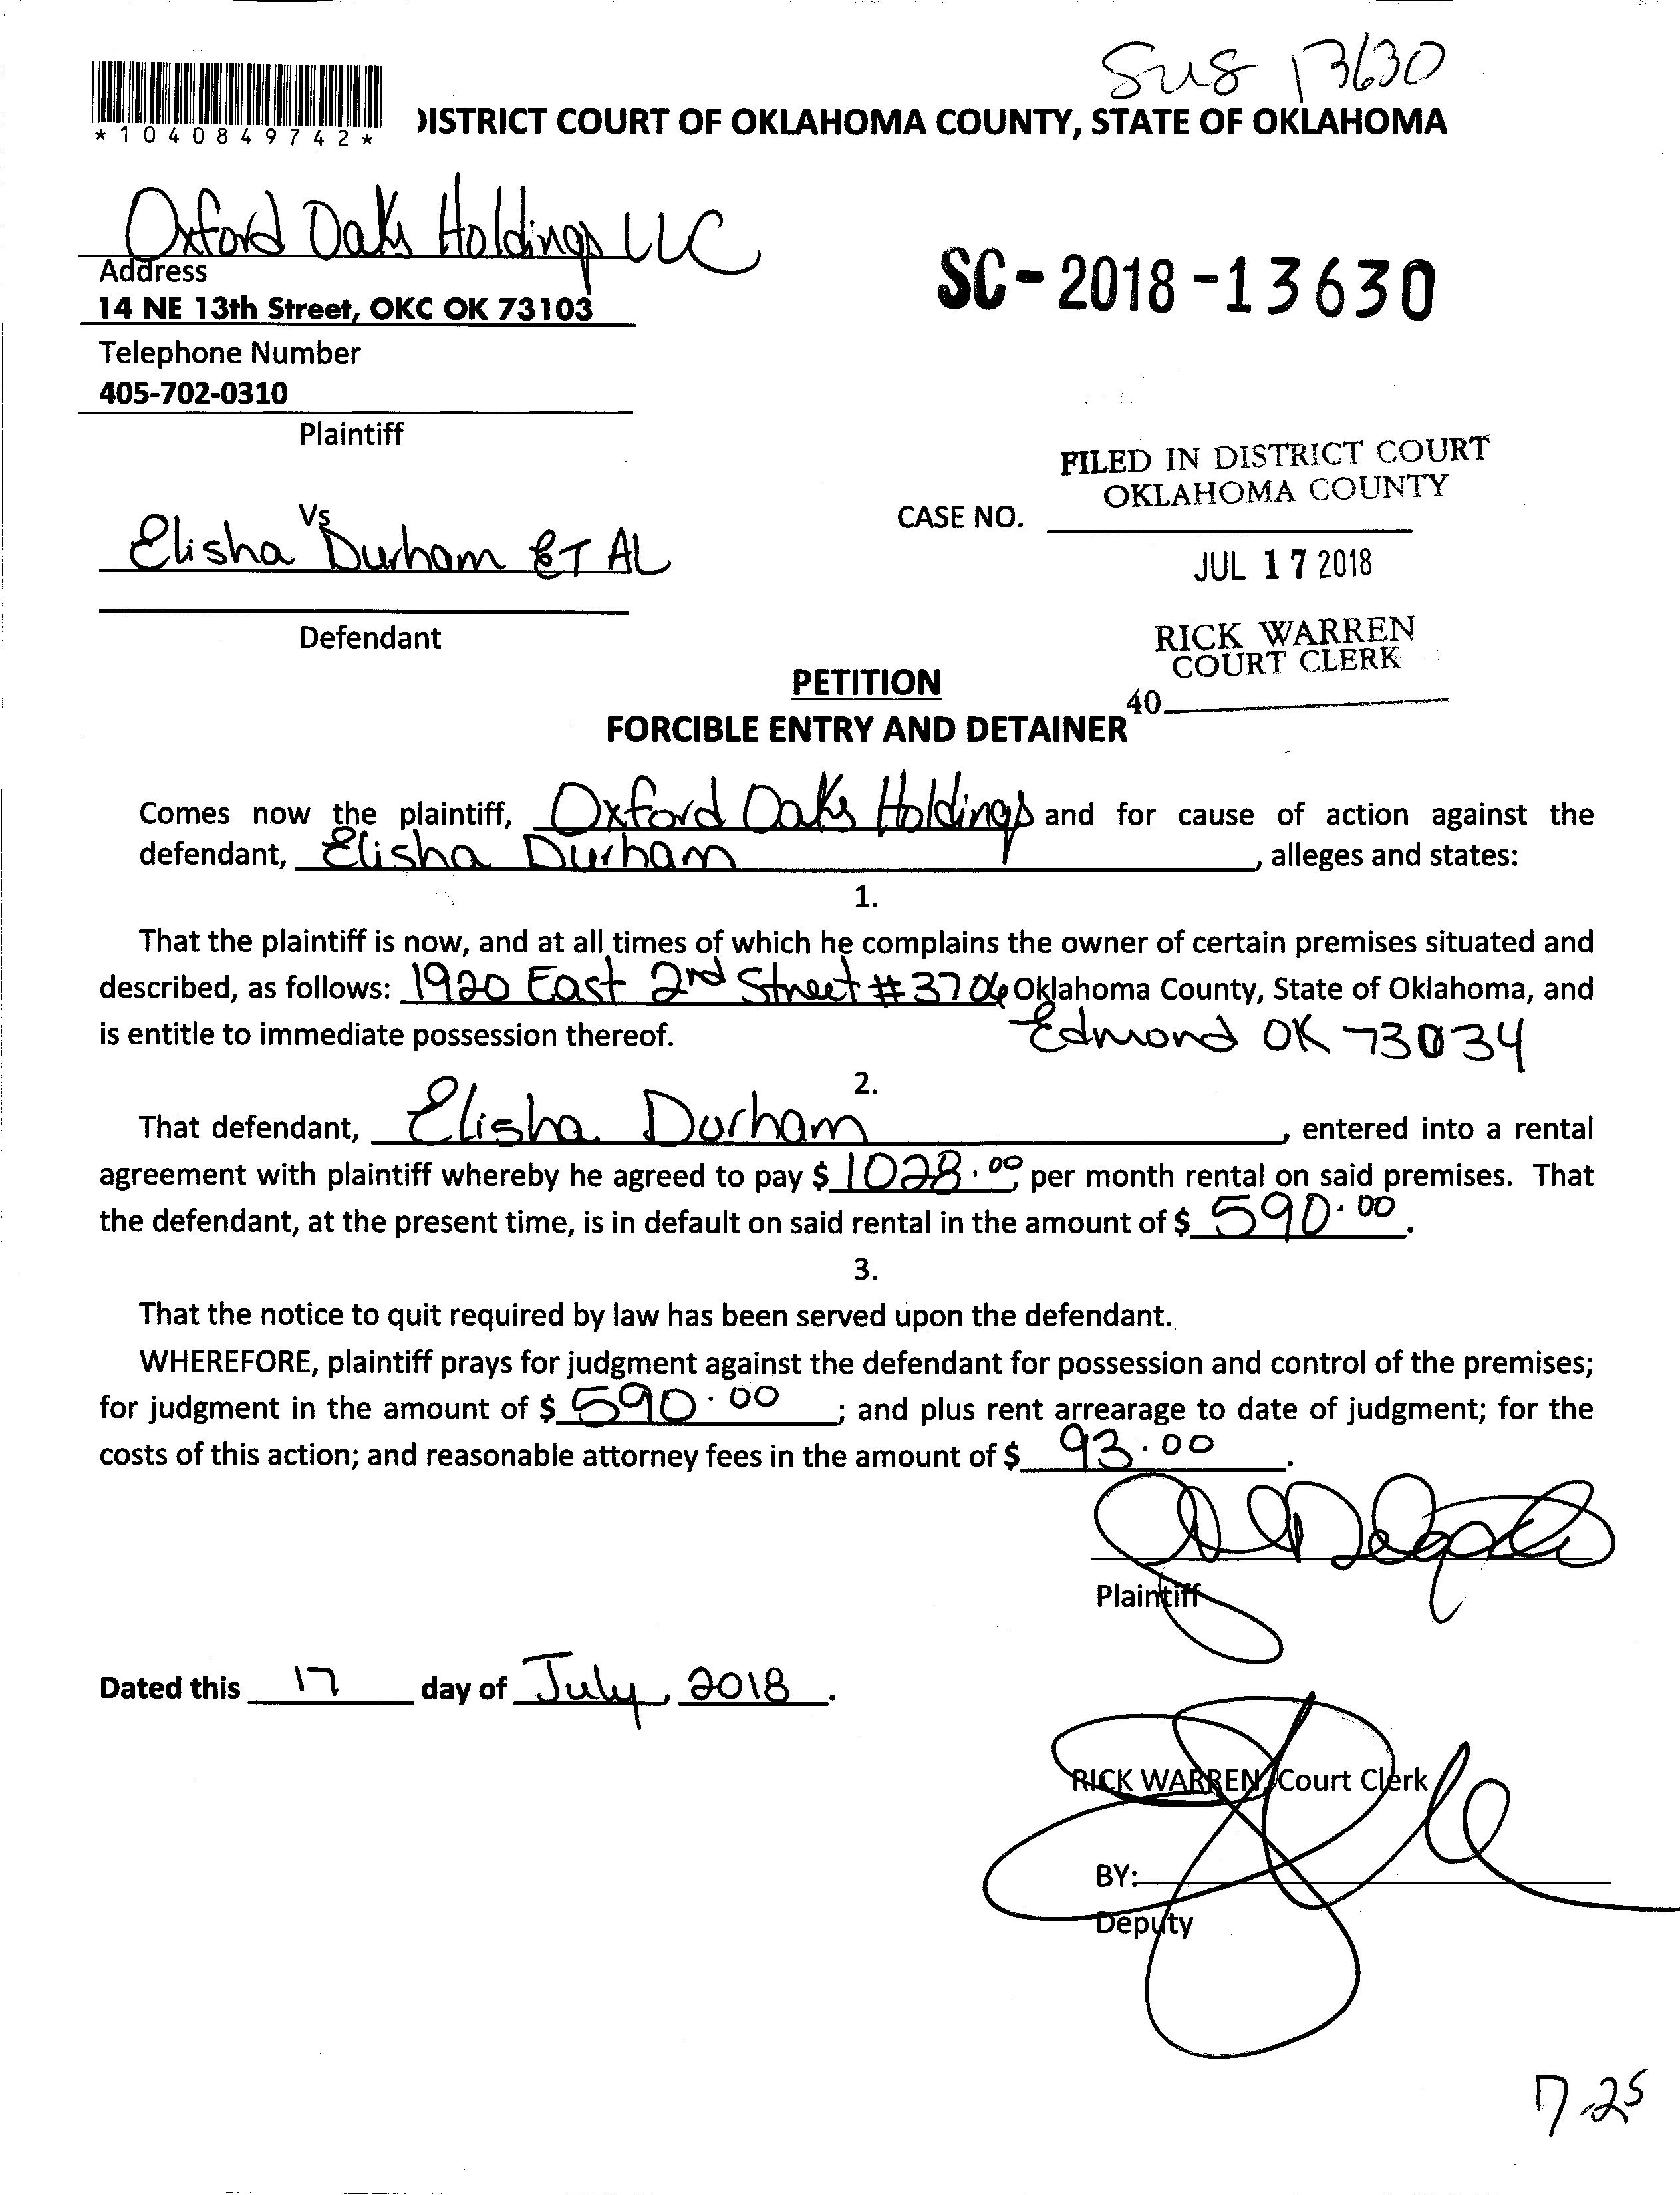 13630
*1040849742*
DISTRICT COURT OF OKLAHOMA COUNTY, STATE OF OKLAHOMA
Oxford Oaks Holdings LLC
Address
14 NE 13th Street, OKC OK 73103
SC-2018-13630
Telephone Number
405-702-0310
Plaintiff
FILED IN DISTRICT COURT
OKLAHOMA COUNTY
Vs
CASE NO.
Elisha Durham ET AL
JUL 17 2018
Defendant
RICK WARREN
COURT CLERK
PETITION
40
FORCIBLE ENTRY AND DETAINER
Comes now the plaintiff, Oxford Oaks Holdings and for cause of action against the
defendant, Elisha Durham, alleges and states:
1.
That the plaintiff is now, and at all times of which he complains the owner of certain premises situated and
described, as follows: 1920 East 2nd Street #3706 Oklahoma County, State of Oklahoma, and
is entitle to immediate possession thereof. Edmond OK 73034
2.
That defendant, Elisha Durham, entered into a rental
agreement with plaintiff whereby he agreed to pay $ 1028.00, per month rental on said premises. That
the defendant, at the present time, is in default on said rental in the amount of $ 590.00.
3.
That the notice to quit required by law has been served upon the defendant.
WHEREFORE, plaintiff prays for judgment against the defendant for possession and control of the premises;
for judgment in the amount of $ 590.00; and plus rent arrearage to date of judgment; for the
costs of this action; and reasonable attorney fees in the amount of $ 93.00.
Plaintiff
Dated this 17 day of July, 2018.
RICK WARREN, Court Clerk
BY:
Deputy
7-25